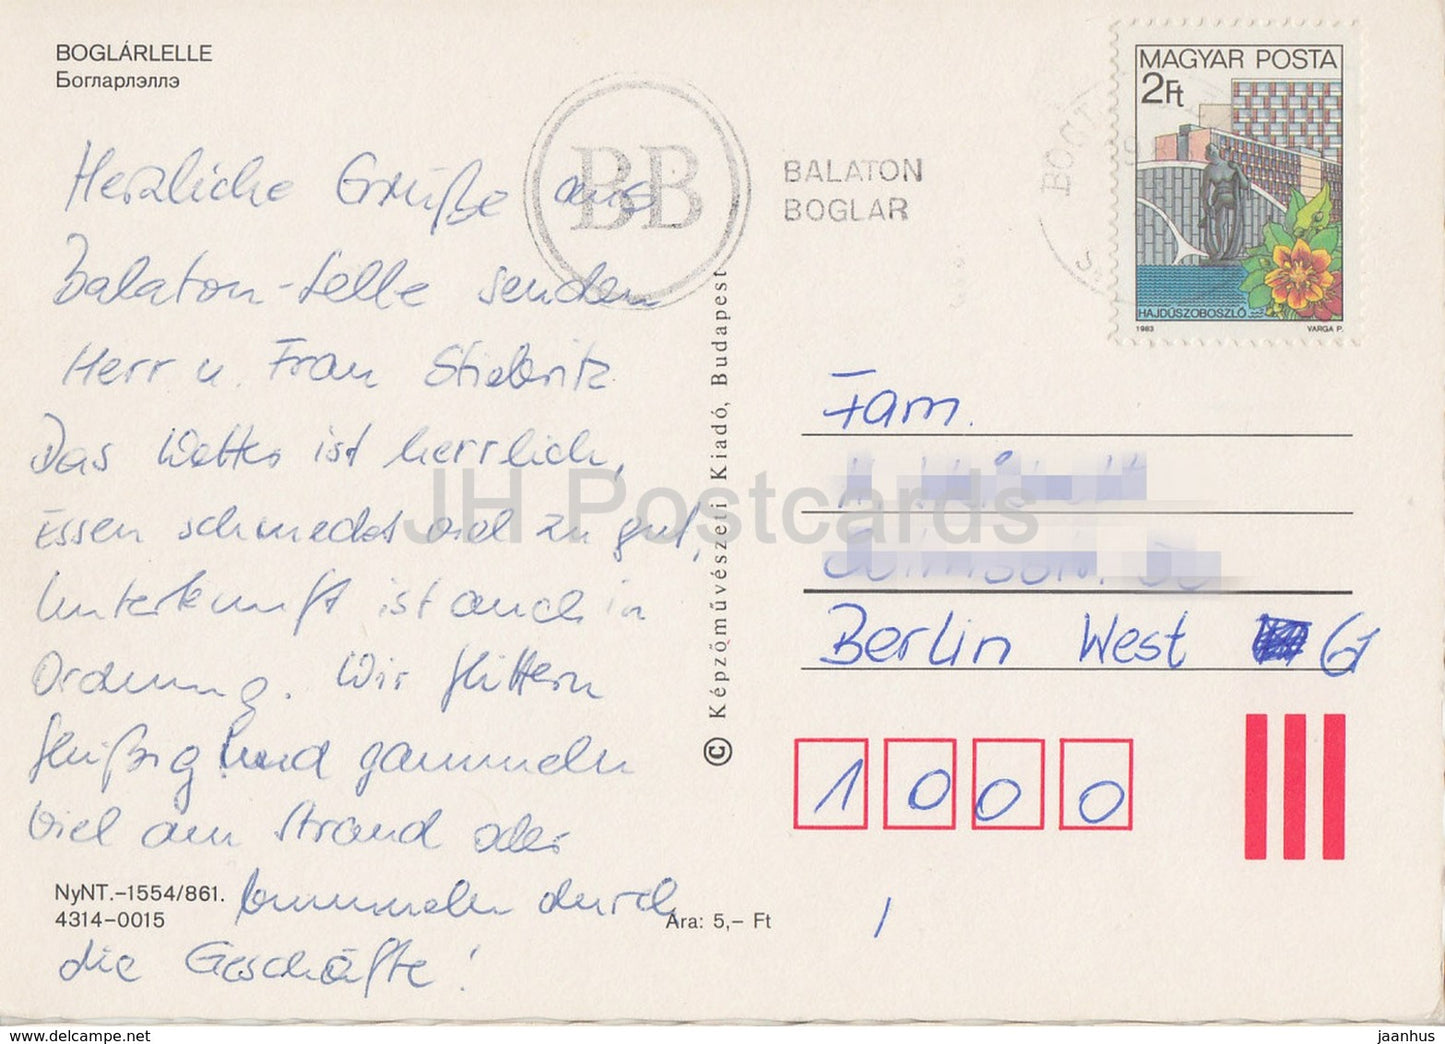 BOGLÁRLELLE
Богларлэллэ
Herzliche Grüße aus
Balaton-Lelle senden
Herr u. Frau Stiebritz
Das Wetter ist herrlich,
Essen schmeckt viel zu gut,
Unterkunft ist auch in
Ordnung. Wir flittern
fleißig und gammeln
viel am Strand oder
bummeln durch
die Geschäfte!
NyNT.-1554/861.
4314-0015
Ára: 5,- Ft
© Képzőművészeti Kiadó, Budapest
BB
BALATON
BOGLAR
MAGYAR POSTA
2Ft
HAJDÚSZOBOSZLÓ
1983 VARGA P.
Fam.
Berlin West 61
1000
JH Postcards
www.delcampe.net
jaanhus